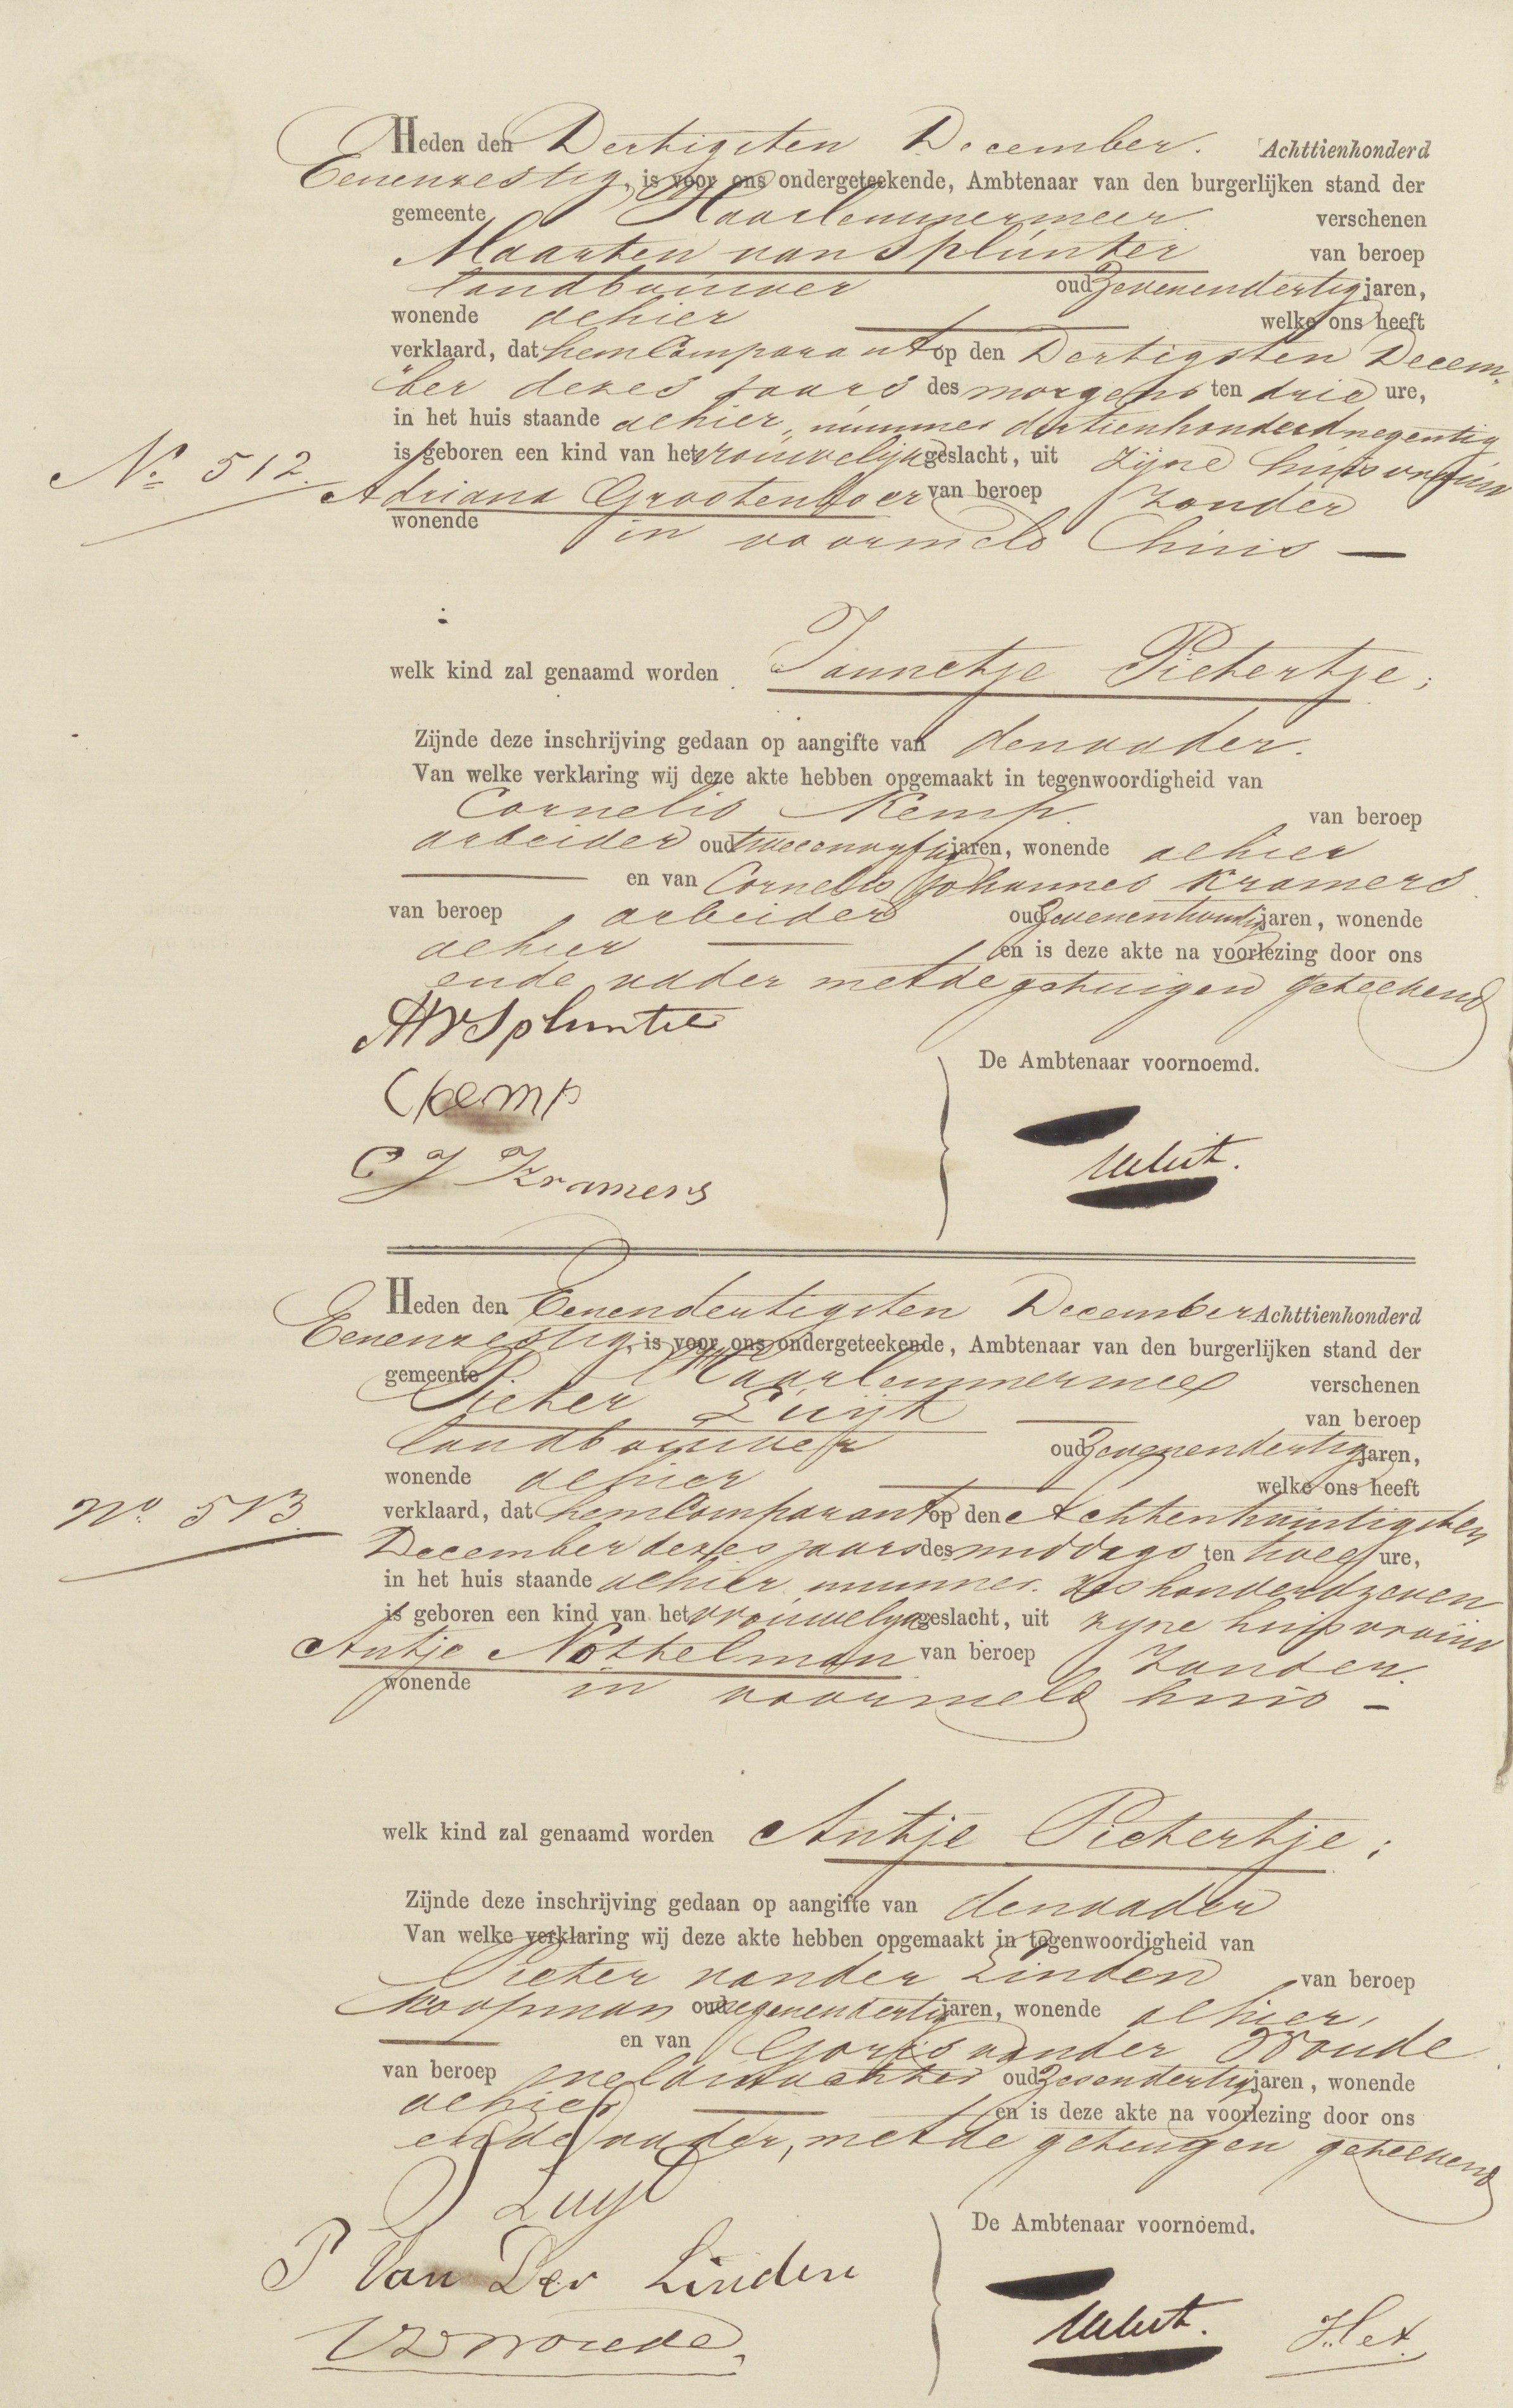 Heden den Dertigsten December. Achttienhonderd
Eenenzestig, is voor ons ondergeteekende, Ambtenaar van den burgerlijken stand der
gemeente Haarlemmermeer verschenen
Maarten van Splunter van beroep
landbouwer oud Zevenendertig jaren,
wonende alhier welke ons heeft
verklaard, dat hem Comparant op den Dertigsten Decem-
ber dezes jaars des morgens ten drie ure,
in het huis staande alhier, nummer dertienhonderdnegentig
is geboren een kind van het vrouwelijk geslacht, uit zijne huisvrouw
No 512.
Adriana Grootenboer van beroep zonder
wonende in voormeld huis
welk kind zal genaamd worden Jannetje Pietertje;
Zijnde deze inschrijving gedaan op aangifte van den vader.
Van welke verklaring wij deze akte hebben opgemaakt in tegenwoordigheid van
Cornelis Kemp. van beroep
arbeider oud jaren, wonende alhier
en van Cornelis Johannes Kramers
van beroep arbeider oud Zevenentwintig jaren, wonende
alhier en is deze akte na voorlezing door ons
en de vader met de getuigen geteekend
MvSplunter
CKemp
De Ambtenaar voornoemd.
C J Kramers
Heden den Eenendertigsten December Achttienhonderd
Eenenzestig, is voor ons ondergeteekende, Ambtenaar van den burgerlijken stand der
gemeente Haarlemmermeer verschenen
Pieter Luijt van beroep
landbouwer oud Zevenendertig jaren,
wonende alhier welke ons heeft
No 513
verklaard, dat hem Comparant op den Achtentwintigsten
December dezes jaars des middags ten twee ure,
in het huis staande alhier nummer. zeshonderdzeven
is geboren een kind van het vrouwelijk geslacht, uit zijne huisvrouw
Antje Nothelman van beroep Zonder.
wonende in voormeld huis
welk kind zal genaamd worden Antje Pietertje;
Zijnde deze inschrijving gedaan op aangifte van den vader
Van welke verklaring wij deze akte hebben opgemaakt in tegenwoordigheid van
Pieter van der Linden van beroep
Koopman oud negenendertig jaren, wonende alhier,
en van Goris van der Woude
van beroep veldwachter oud Zesendertig jaren, wonende
alhier en is deze akte na voorlezing door ons
en de vader, met de getuigen geteekend
P Luijt
De Ambtenaar voornoemd.
P Van Der Linden